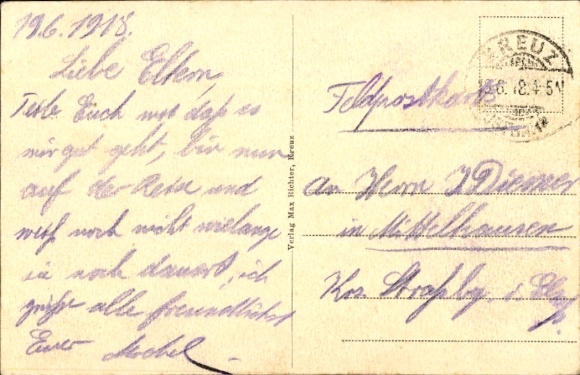 19.6.1918.
Liebe Eltern,
Teile Euch mit daß es
mir gut geht, bin nun
auf der Reise und
weiß noch nicht wielange
es noch dauert, ich
grüße alle freundlichst
Euer Michel
Verlag Max Richter, Kreuz
KREUZ
19.6.18.4-5N
Feldpostkarte
An Herrn J Diemer
in Mittelhausen
Krs. Straßbg i. Els.